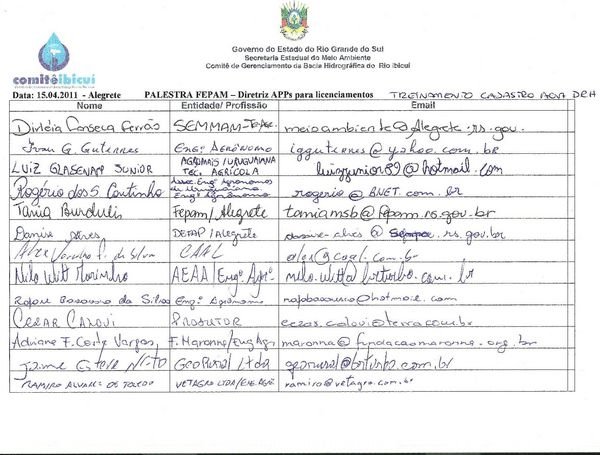 Governo do Estado do Rio Grande do Sul
Secretaria Estadual do Meio Ambiente
Comitê de Gerenciamento da Bacia Hidrográfica do Rio Ibicuí
comitêibicuí
Data: 15.04.2011 - Alegrete PALESTRA FEPAM – Diretriz APPs para licenciamentos TREINAMENTO CADASTRO AGUA DRH
Nome Entidade/ Profissão Email
Fonseca Ferrão SEMMAM meioambiente@Alegrete.rs.gov.
Ivan G. Gutierres Engº AGRÔNOMO iggutierres@yahoo.com.br
LUIZ GLASENAPP JUNIOR AGROMAIS/URUGUAIANA TEC. AGRÍCOLA luizjunior89@hotmail.com
Rogério dos S. Coutinho Assoc. Engº Agrônomos de Uruguaiana Engº Agrônomo rogerio@BNET.com.br
Tania Burdulis Fepam/Alegrete taniamsb@fepam.rs.gov.br
Alegrete .rs.gov.br
da Silva CAAL alex@caal.com.br
Nilo Witt AEAA/Engº Agrº
da Silva Engº Agrônomo @hotmail.com
CEZAR PRODUTOR @terra.com.br
Adriane F. Costa Vargas F. Maronna/Eng Agr maronna@fundacaomaronna.org.br
Jaime Neto GeoRural Ltda georural@brturbo.com.br
RAMIRO ALVAREZ DE TOLEDO VETAGRO LTDA/ENG.AGR ramiro@vetagro.com.br